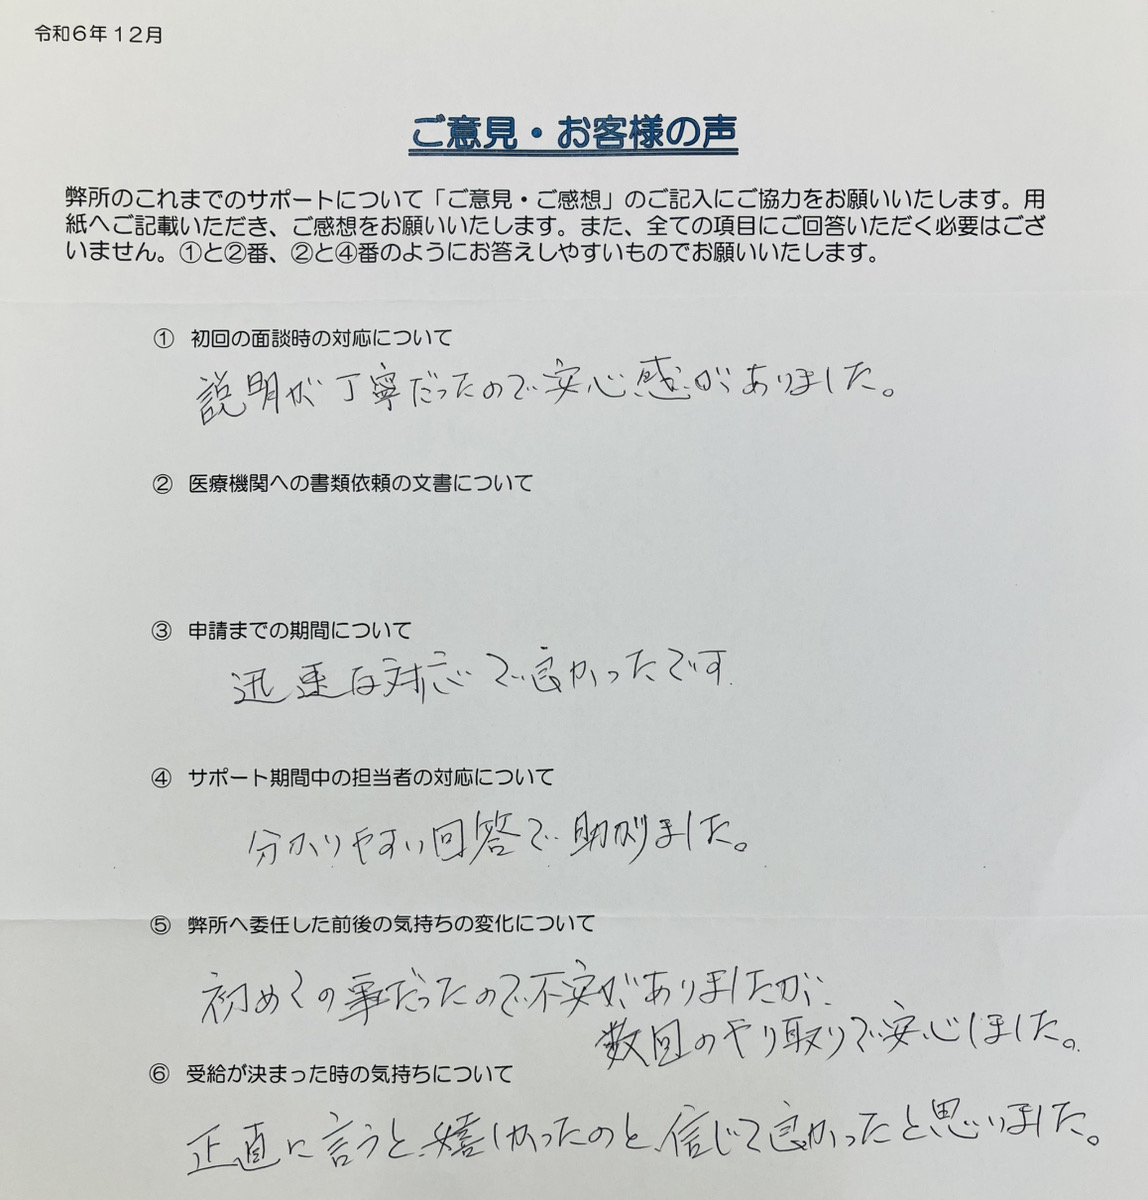 令和6年12月
ご意見・お客様の声
弊所のこれまでのサポートについて「ご意見・ご感想」のご記入にご協力をお願いいたします。用
紙へご記載いただき、ご感想をお願いいたします。また、全ての項目にご回答いただく必要はござ
いません。①と②番、②と④番のようにお答えしやすいものでお願いいたします。
① 初回の面談時の対応について
説明が丁寧だったので安心感がありました。
② 医療機関への書類依頼の文書について
③ 申請までの期間について
迅速な対応で良かったです.
④ サポート期間中の担当者の対応について
分かりやすい回答で助かりました。
⑤ 弊所へ委任した前後の気持ちの変化について
初めての事だったので不安がありましたが、
数回のやり取りで安心しました。
⑥ 受給が決まった時の気持ちについて
正直に言うと、嬉しかったのと、信じて良かったと思いました。